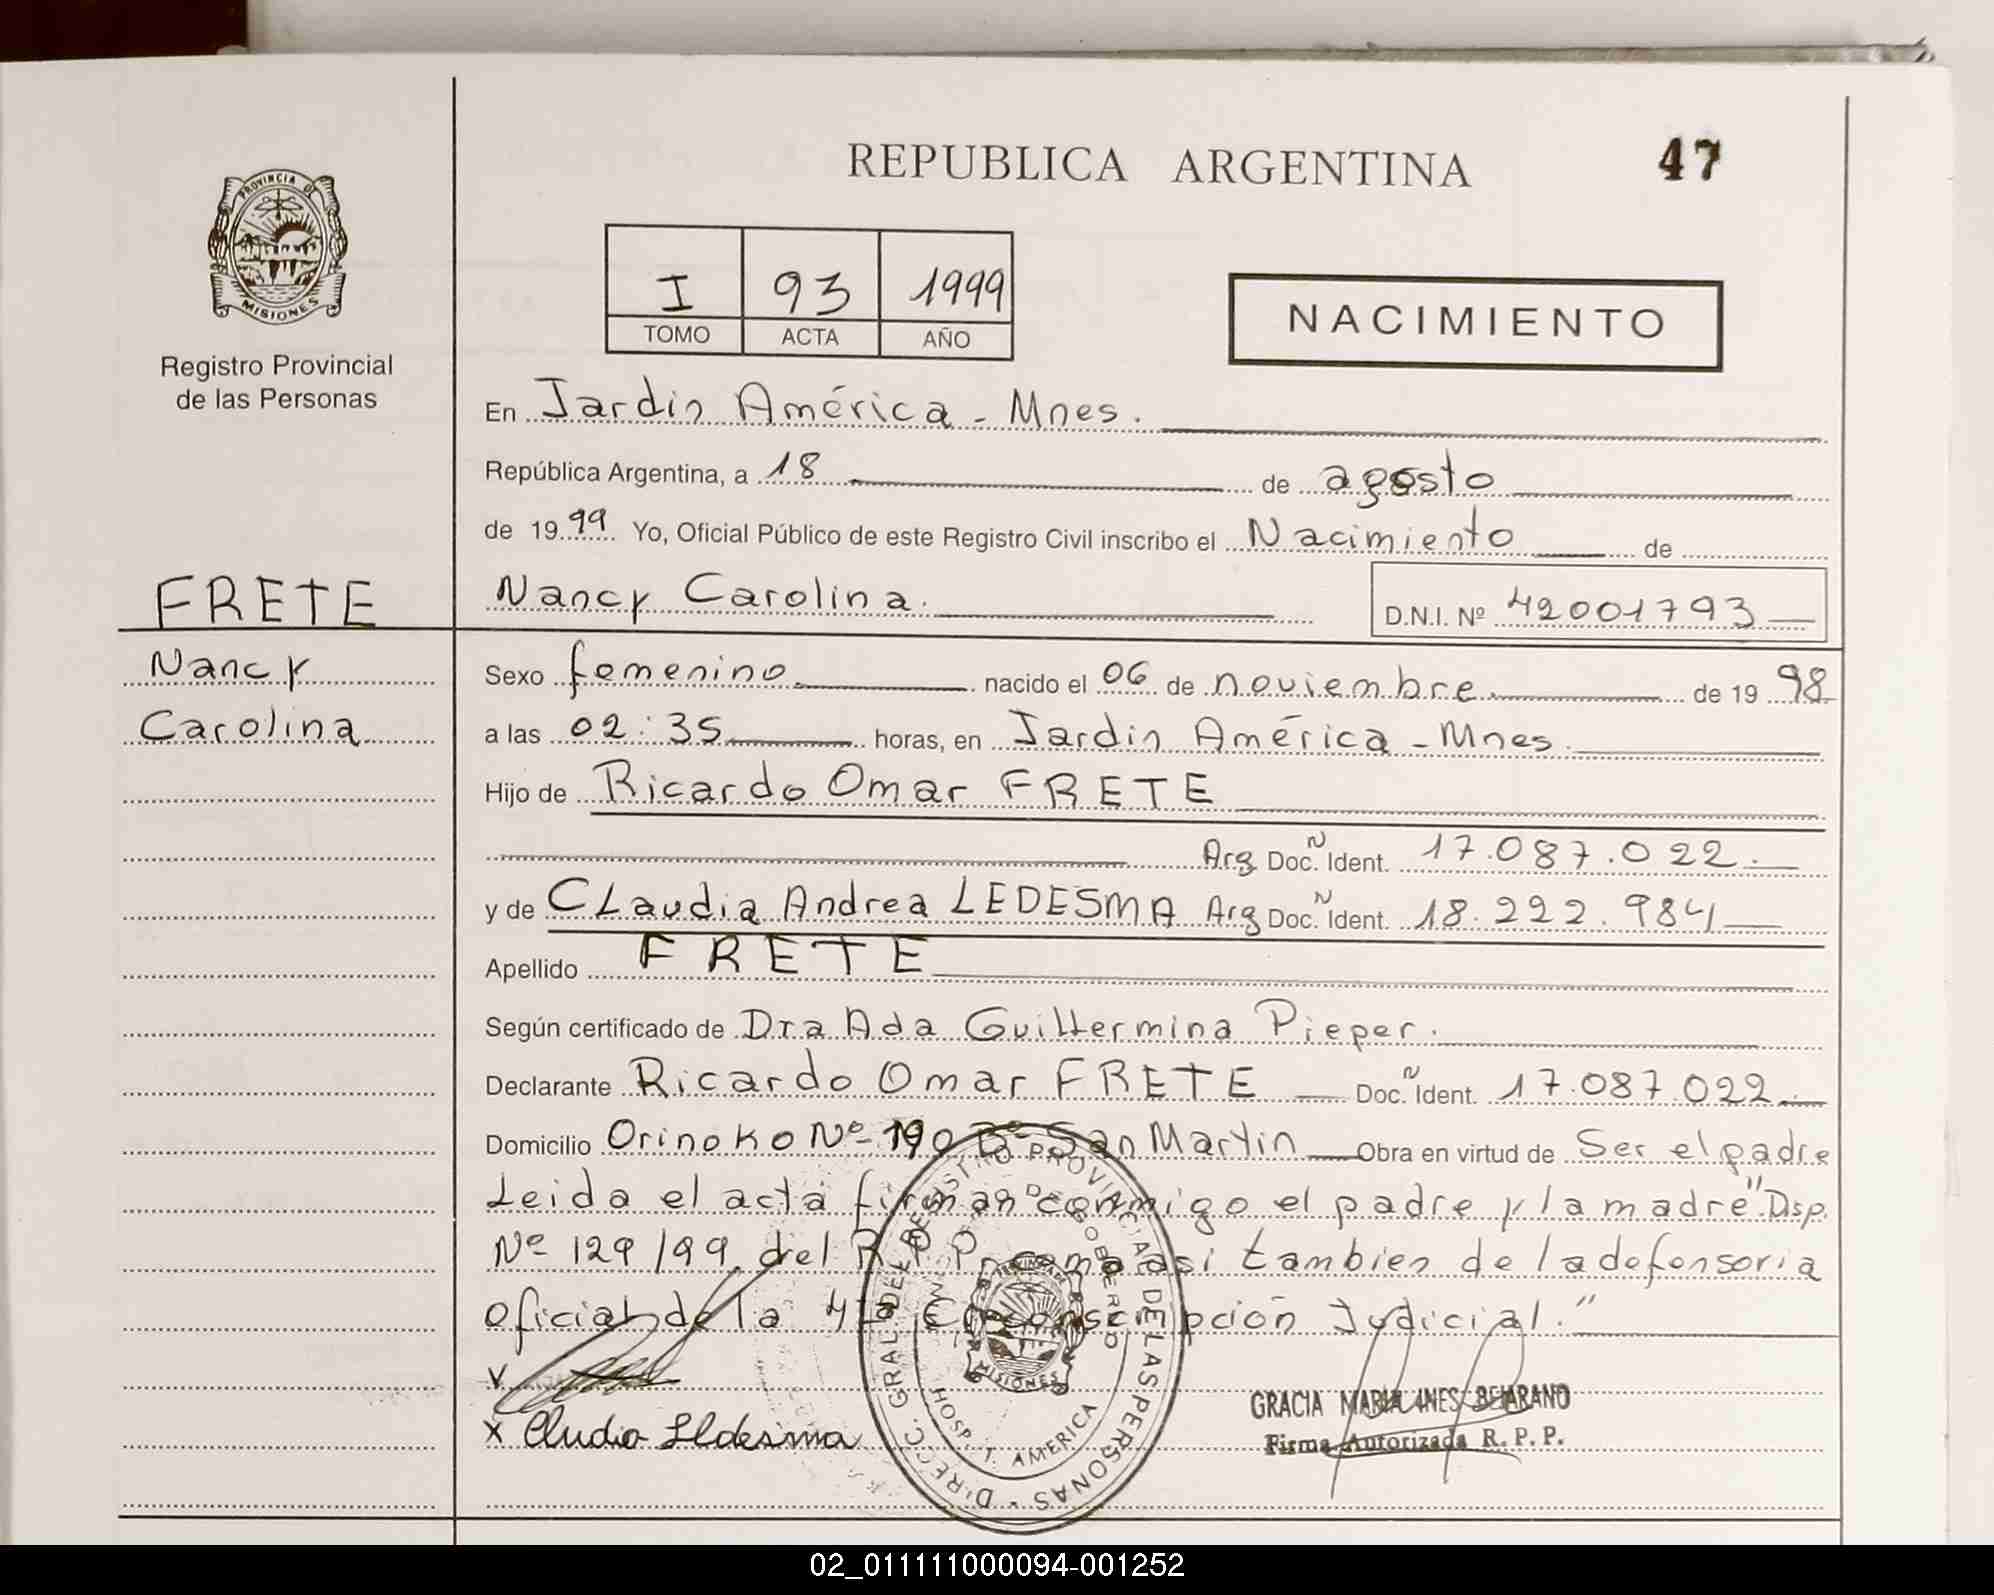 REPUBLICA ARGENTINA
47
PROVINCIA DE
MISIONES
Registro Provincial
de las Personas
I 93 1999
TOMO ACTA AÑO
NACIMIENTO
En Jardín América - Mnes.
República Argentina, a 18 de agosto
de 1999 Yo, Oficial Público de este Registro Civil inscribo el Nacimiento de
FRETE
Nancy Carolina.
D.N.I. Nº 42001793
Nancy
Carolina
Sexo femenino nacido el 06 de noviembre de 1998
a las 02:35 horas, en Jardin América - Mnes.
Hijo de Ricardo Omar FRETE
Arg Doc. N Ident. 17.087.022.
y de CLaudia Andrea LEDESMA Arg Doc. N Ident. 18.222.984
Apellido FRETE
Según certificado de Dra Ada Guillermina Pieper.
Declarante Ricardo Omar FRETE Doc. N Ident. 17.087.022
Domicilio Orinoko Nº 190 Bº San Martin Obra en virtud de Ser el padre
Leida el acta firman conmigo el padre y la madre "Disp.
Nº 129/99 del R.P.P. como asi tambien de la defensoria
oficial de la 4ta Circonscripción Judicial."
x Cludia Lldesma
DIRECC. GRAL DEL REGISTRO PROVINCIAL DE LAS PERSONAS
MIN. DE GOBIERNO
MISIONES
HOSP. T. AMERICA
GRACIA MARIA INES BEJARANO
Firma Autorizada R. P. P.
02_011111000094-001252